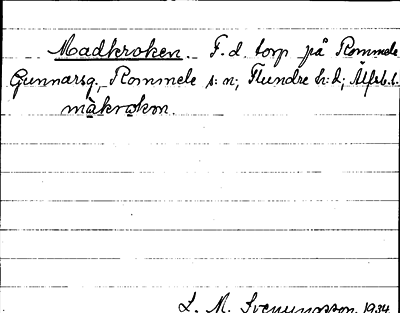 Madkroken. F. d. torp på Rommele
Gunnarsg., Rommele s:n; Flundre h:d; Älfsb. l.
màkrokon.
L. M. Svenungsson 1934